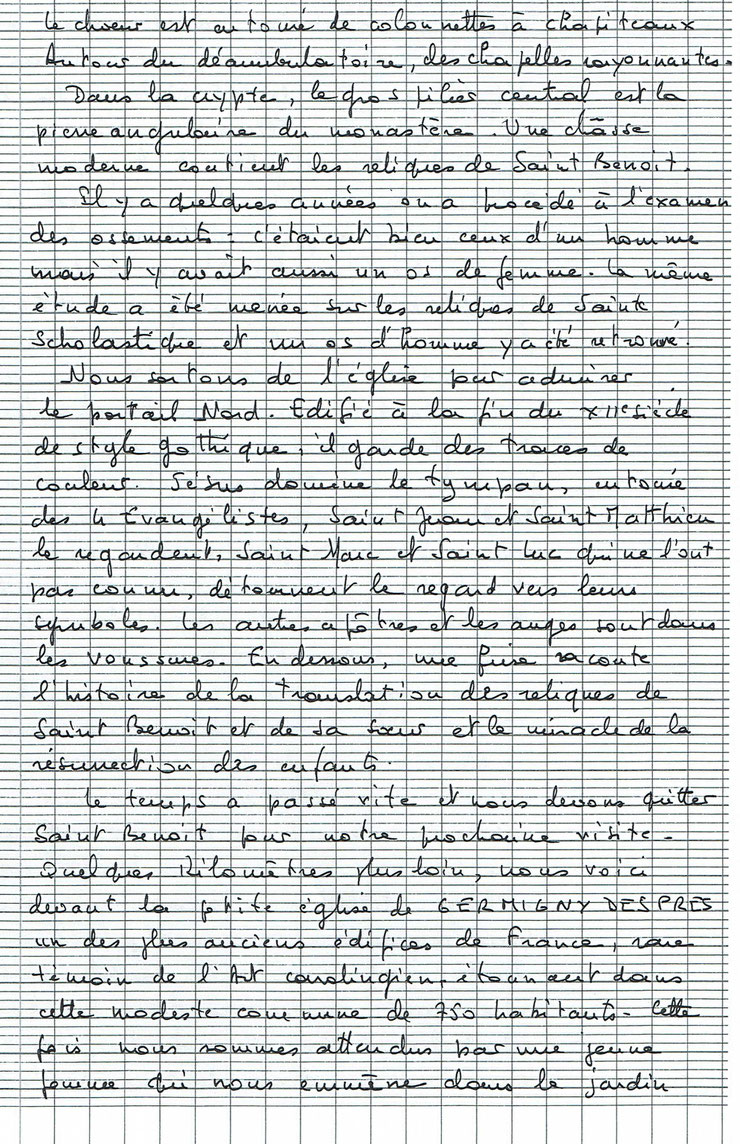 Le choeur est entouré de colonnettes à chapiteaux
Autour du déambulatoire, des chapelles rayonnantes.
Dans la crypte, le gros pilier central est la
pierre angulaire du monastère. Une châsse
moderne contient les reliques de Saint Benoit.
Il y a quelques années on a procédé à l'examen
des ossements : c'étaient bien ceux d'un homme
mais il y avait aussi un os de femme. La même
étude a été menée sur les reliques de Sainte
Scholastique et un os d'homme y a été retrouvé.
Nous sortons de l'église pour admirer
le portail Nord. Edifié à la fin du XIIe siècle
de style gothique, il garde des traces de
couleur. Jésus domine le tympan, entouré
des 4 Evangélistes, Saint Jean et Saint Matthieu
le regardent, Saint Marc et Saint Luc qui ne l'ont
pas connu, détournent le regard vers leurs
symboles. Les autres apôtres et les anges sont dans
les voussures. En dessous, une frise raconte
l'histoire de la translation des reliques de
Saint Benoit et de sa soeur et le miracle de la
résurrection des enfants.
Le temps a passé vite et nous devons quitter
Saint Benoit pour notre prochaine visite.
Quelques Kilomètres plus loin, nous voici
devant la petite église de GERMIGNY DES PRES
un des plus anciens édifices de France, rare
témoin de l'Art carolingien, étonnant dans
cette modeste commune de 750 habitants. Cette
fois nous sommes attendus par une jeune
femme qui nous emmène dans le jardin